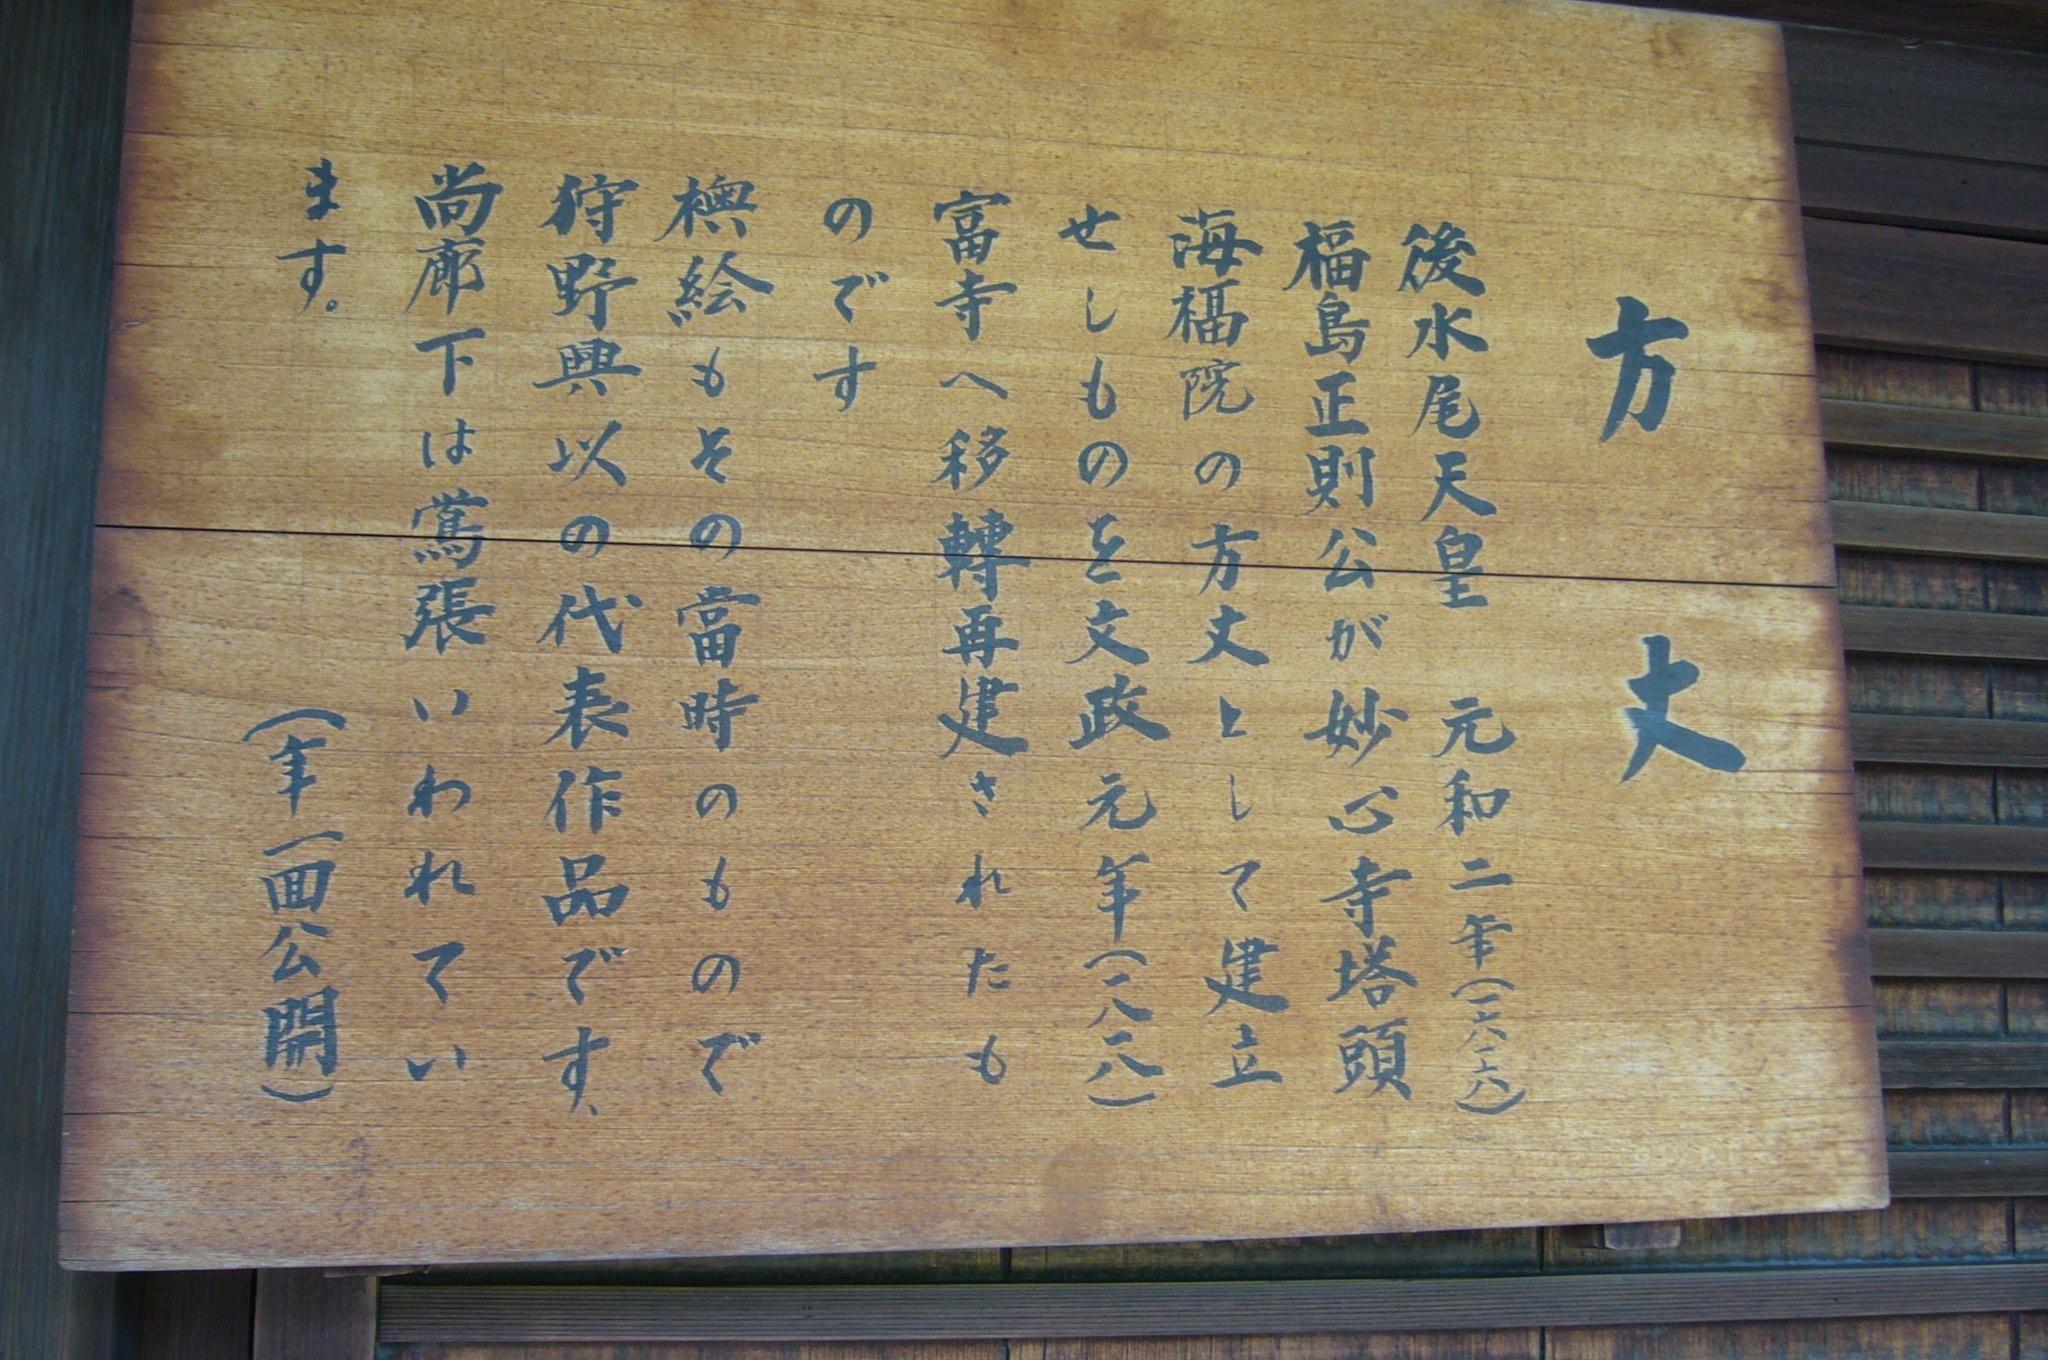 方丈
後水尾天皇 元和二年(一六一六)
福島正則公が妙心寺塔頭
海福院の方丈として建立
せしものを文政元年(一八一八)
富寺へ移轉再建されたも
のです
襖絵もその當時のもので
狩野興以の代表作品です、
尚廊下は鴬張いわれてい
ます。 (年一回公開)